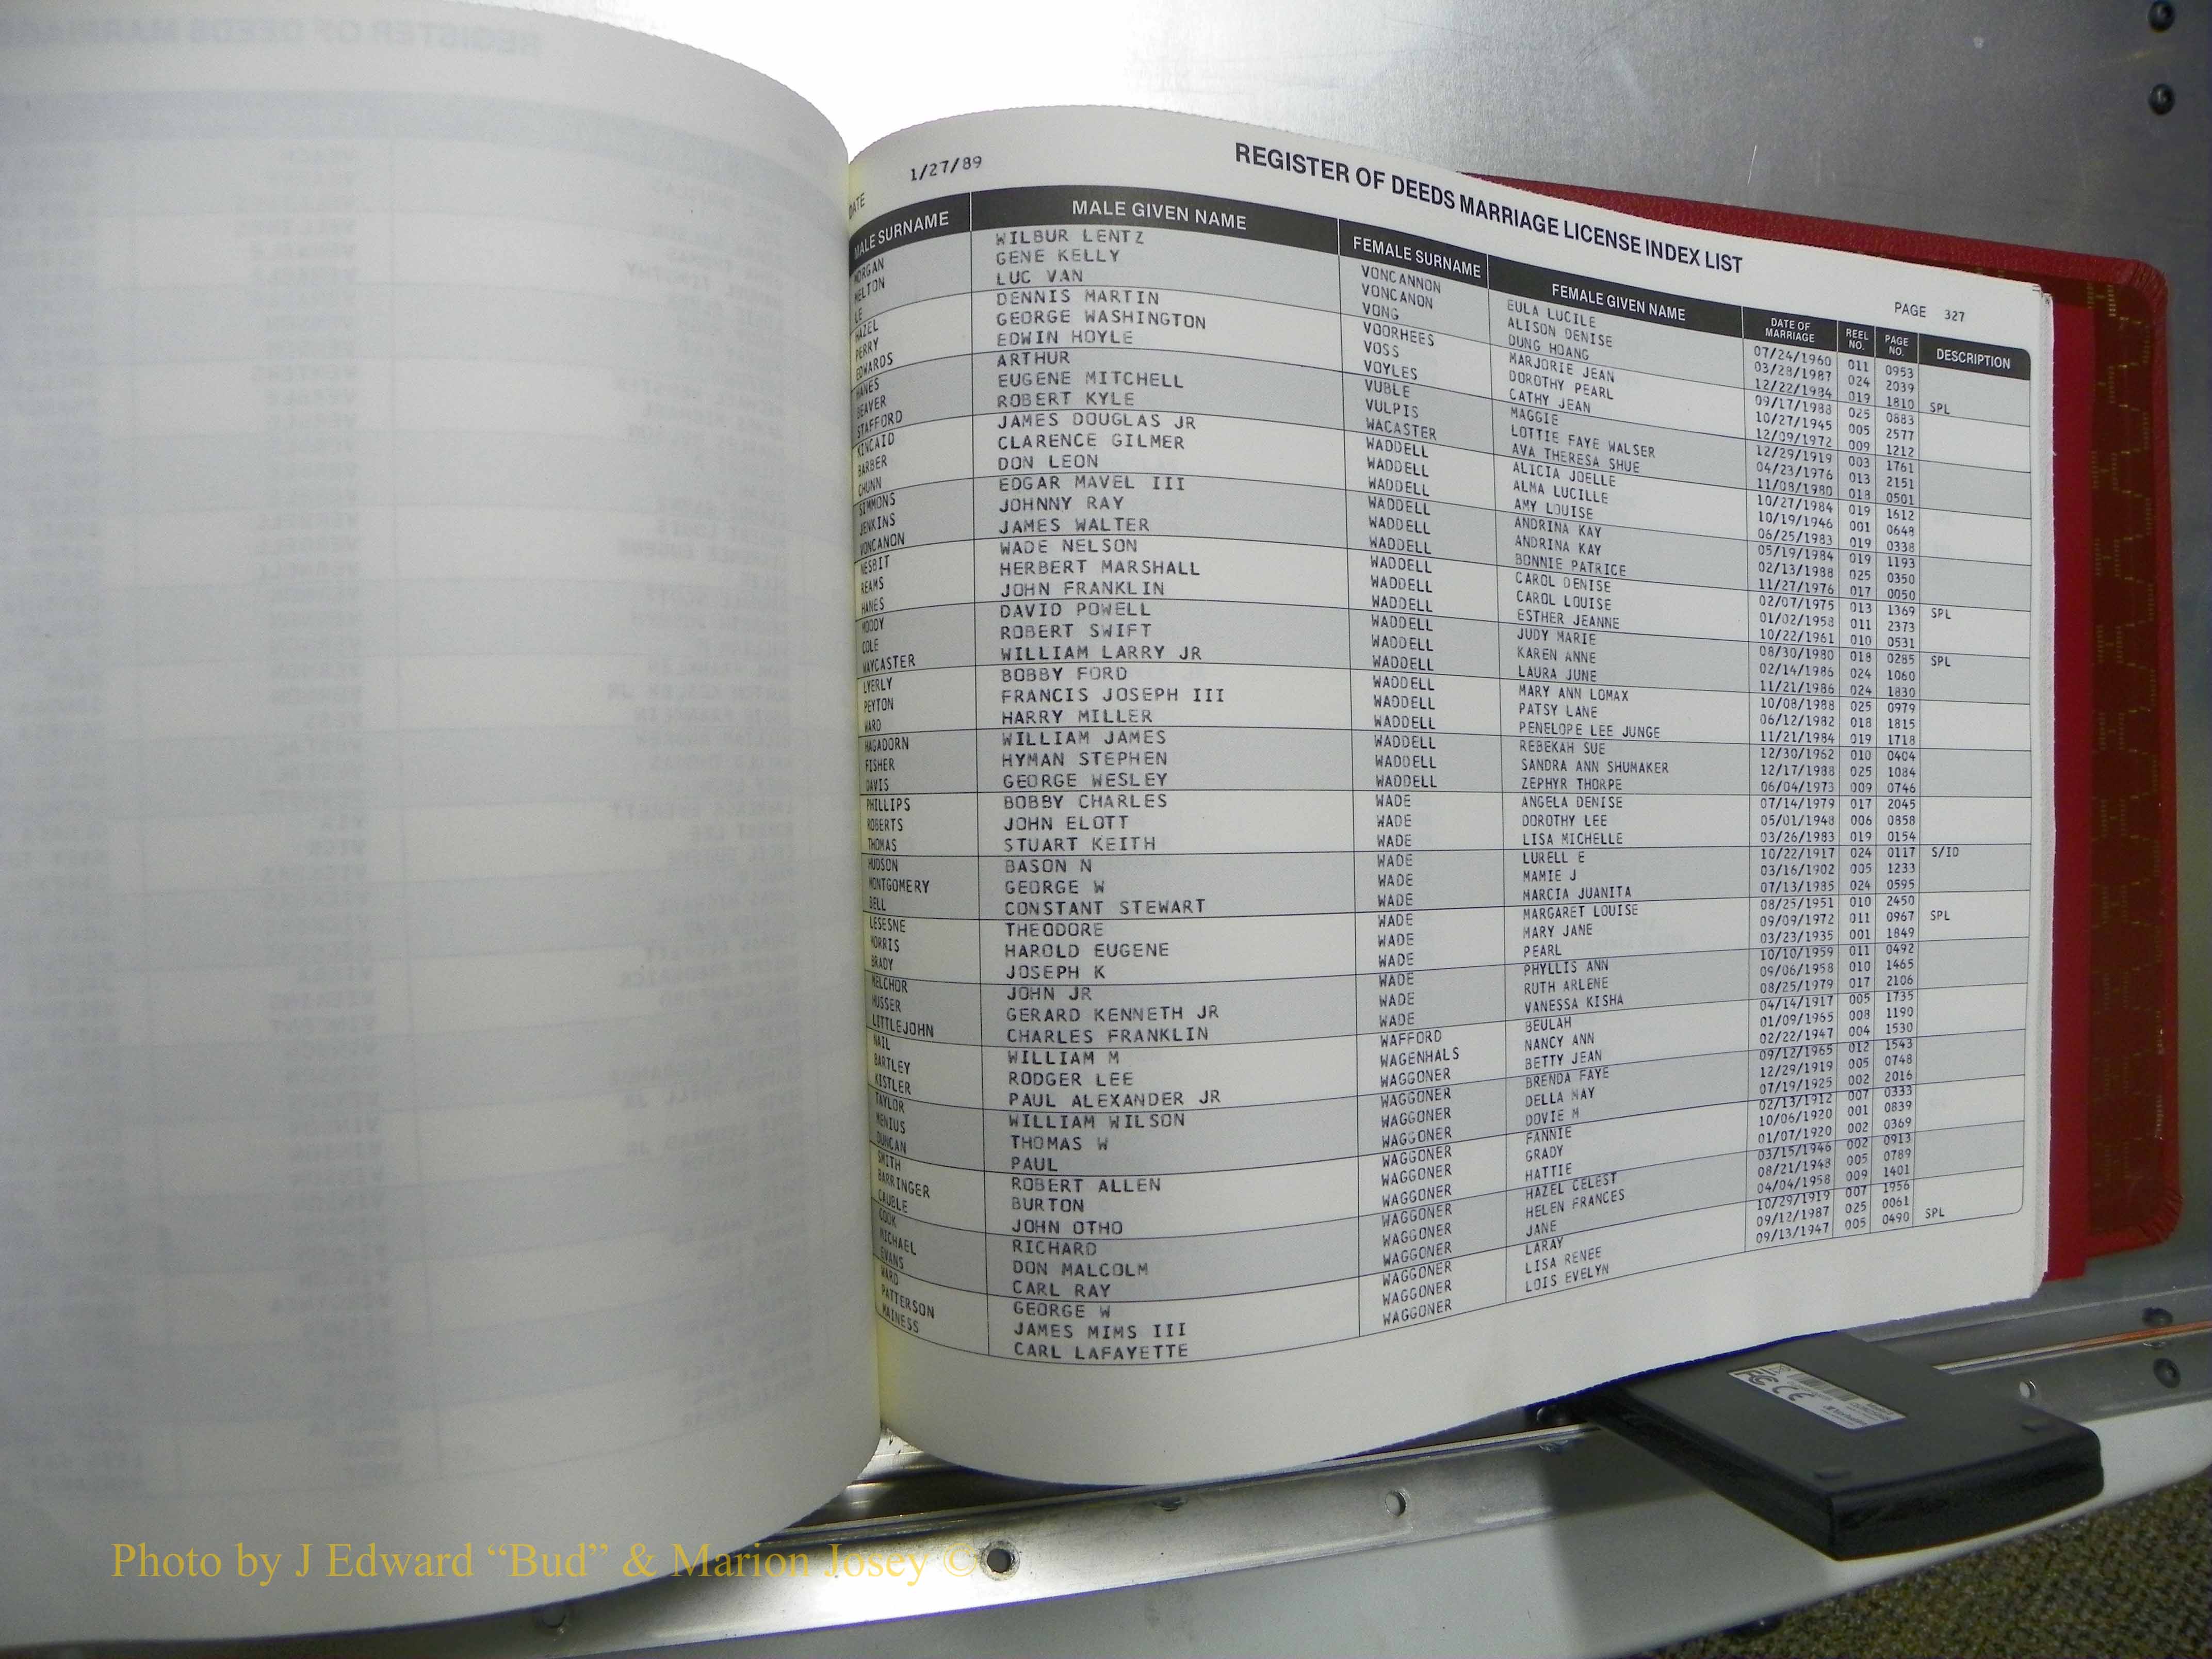 REGISTER OF DEEDS MARRIAGE LICENSE INDEX LIST
DATE 1/27/89 PAGE 327
MALE SURNAME MALE GIVEN NAME FEMALE SURNAME FEMALE GIVEN NAME DATE OF MARRIAGE REEL NO. PAGE NO. DESCRIPTION
MORGAN WILBUR LENTZ VONCANNON EULA LUCILE 07/24/1960 011 0953
MELTON GENE KELLY VONCANON ALISON DENISE 03/28/1987 024 2039
LE LUC VAN VONG DUNG HOANG 12/22/1984 019 1810 SPL
HAZEL DENNIS MARTIN VOORHEES MARJORIE JEAN 09/17/1988 025 0883
PERRY GEORGE WASHINGTON VOSS DOROTHY PEARL 10/27/1945 005 2577
EDWARDS EDWIN HOYLE VOYLES CATHY JEAN 12/09/1972 009 1212
HANES ARTHUR VUBLE MAGGIE 12/29/1919 003 1761
BEAVER EUGENE MITCHELL VULPIS LOTTIE FAYE WALSER 04/23/1976 013 2151
STAFFORD ROBERT KYLE WACASTER AVA THERESA SHUE 11/08/1980 018 0501
KINCAID JAMES DOUGLAS JR WADDELL ALICIA JOELLE 10/27/1984 019 1612
BARBER CLARENCE GILMER WADDELL ALMA LUCILLE 10/19/1946 001 0648
CHUNN DON LEON WADDELL AMY LOUISE 06/25/1983 019 0338
SIMMONS EDGAR MAVEL III WADDELL ANDRINA KAY 05/19/1984 019 1193
JENKINS JOHNNY RAY WADDELL ANDRINA KAY 02/13/1988 025 0350
VONCANON JAMES WALTER WADDELL BONNIE PATRICE 11/27/1976 017 0050
NESBIT WADE NELSON WADDELL CAROL DENISE 02/07/1975 013 1369 SPL
REAMS HERBERT MARSHALL WADDELL CAROL LOUISE 01/02/1958 011 2373
HANES JOHN FRANKLIN WADDELL ESTHER JEANNE 10/22/1961 010 0531
MOODY DAVID POWELL WADDELL JUDY MARIE 08/30/1980 018 0285 SPL
COLE ROBERT SWIFT WADDELL KAREN ANNE 02/14/1986 024 1060
WAYCASTER WILLIAM LARRY JR WADDELL LAURA JUNE 11/21/1986 024 1830
LYERLY BOBBY FORD WADDELL MARY ANN LOMAX 10/08/1988 025 0979
PEYTON FRANCIS JOSEPH III WADDELL PATSY LANE 06/12/1982 018 1815
WARD HARRY MILLER WADDELL PENELOPE LEE JUNGE 11/21/1984 019 1718
HAGADORN WILLIAM JAMES WADDELL REBEKAH SUE 12/30/1962 010 0404
FISHER HYMAN STEPHEN WADDELL SANDRA ANN SHUMAKER 12/17/1988 025 1084
DAVIS GEORGE WESLEY WADDELL ZEPHYR THORPE 06/04/1973 009 0746
PHILLIPS BOBBY CHARLES WADE ANGELA DENISE 07/14/1979 017 2045
ROBERTS JOHN ELOTT WADE DOROTHY LEE 05/01/1948 006 0858
THOMAS STUART KEITH WADE LISA MICHELLE 03/26/1983 019 0154
HUDSON BASON N WADE LURELL E 10/22/1917 024 0117 S/ID
MONTGOMERY GEORGE W WADE MAMIE J 03/16/1902 005 1233
BELL CONSTANT STEWART WADE MARCIA JUANITA 07/13/1985 024 0595
LESESNE THEODORE WADE MARGARET LOUISE 08/25/1951 010 2450
MORRIS HAROLD EUGENE WADE MARY JANE 09/09/1972 011 0967 SPL
BRADY JOSEPH K WADE PEARL 03/23/1935 001 1849
MELCHOR JOHN JR WADE PHYLLIS ANN 10/10/1959 011 0492
HUSSER GERARD KENNETH JR WADE RUTH ARLENE 09/06/1958 010 1465
LITTLEJOHN CHARLES FRANKLIN WADE VANESSA KISHA 08/25/1979 017 2106
NAIL WILLIAM M WAFFORD BEULAH 04/14/1917 005 1735
BARTLEY RODGER LEE WAGENHALS NANCY ANN 01/09/1965 008 1190
KISTLER PAUL ALEXANDER JR WAGGONER BETTY JEAN 02/22/1947 004 1530
TAYLOR WILLIAM WILSON WAGGONER BRENDA FAYE 09/12/1965 012 1543
MENIUS THOMAS W WAGGONER DELLA MAY 12/29/1919 005 0748
DUNCAN PAUL WAGGONER DOVIE M 07/19/1925 002 2016
SMITH ROBERT ALLEN WAGGONER FANNIE 02/13/1912 007 0333
BARRINGER BURTON WAGGONER GRADY 10/06/1920 001 0839
CAUBLE JOHN OTHO WAGGONER HATTIE 01/07/1920 002 0369
COOK RICHARD WAGGONER HAZEL CELEST 03/15/1946 002 0913
MICHAEL DON MALCOLM WAGGONER HELEN FRANCES 08/21/1948 005 0789
EVANS CARL RAY WAGGONER JANE 04/04/1958 009 1401
WARD GEORGE W WAGGONER LARAY 10/29/1919 007 1956
PATTERSON JAMES MIMS III WAGGONER LISA RENEE 09/12/1987 025 0061
MAINESS CARL LAFAYETTE WAGGONER LOIS EVELYN 09/13/1947 005 0490 SPL
Photo by J Edward “Bud” & Marion Josey ©